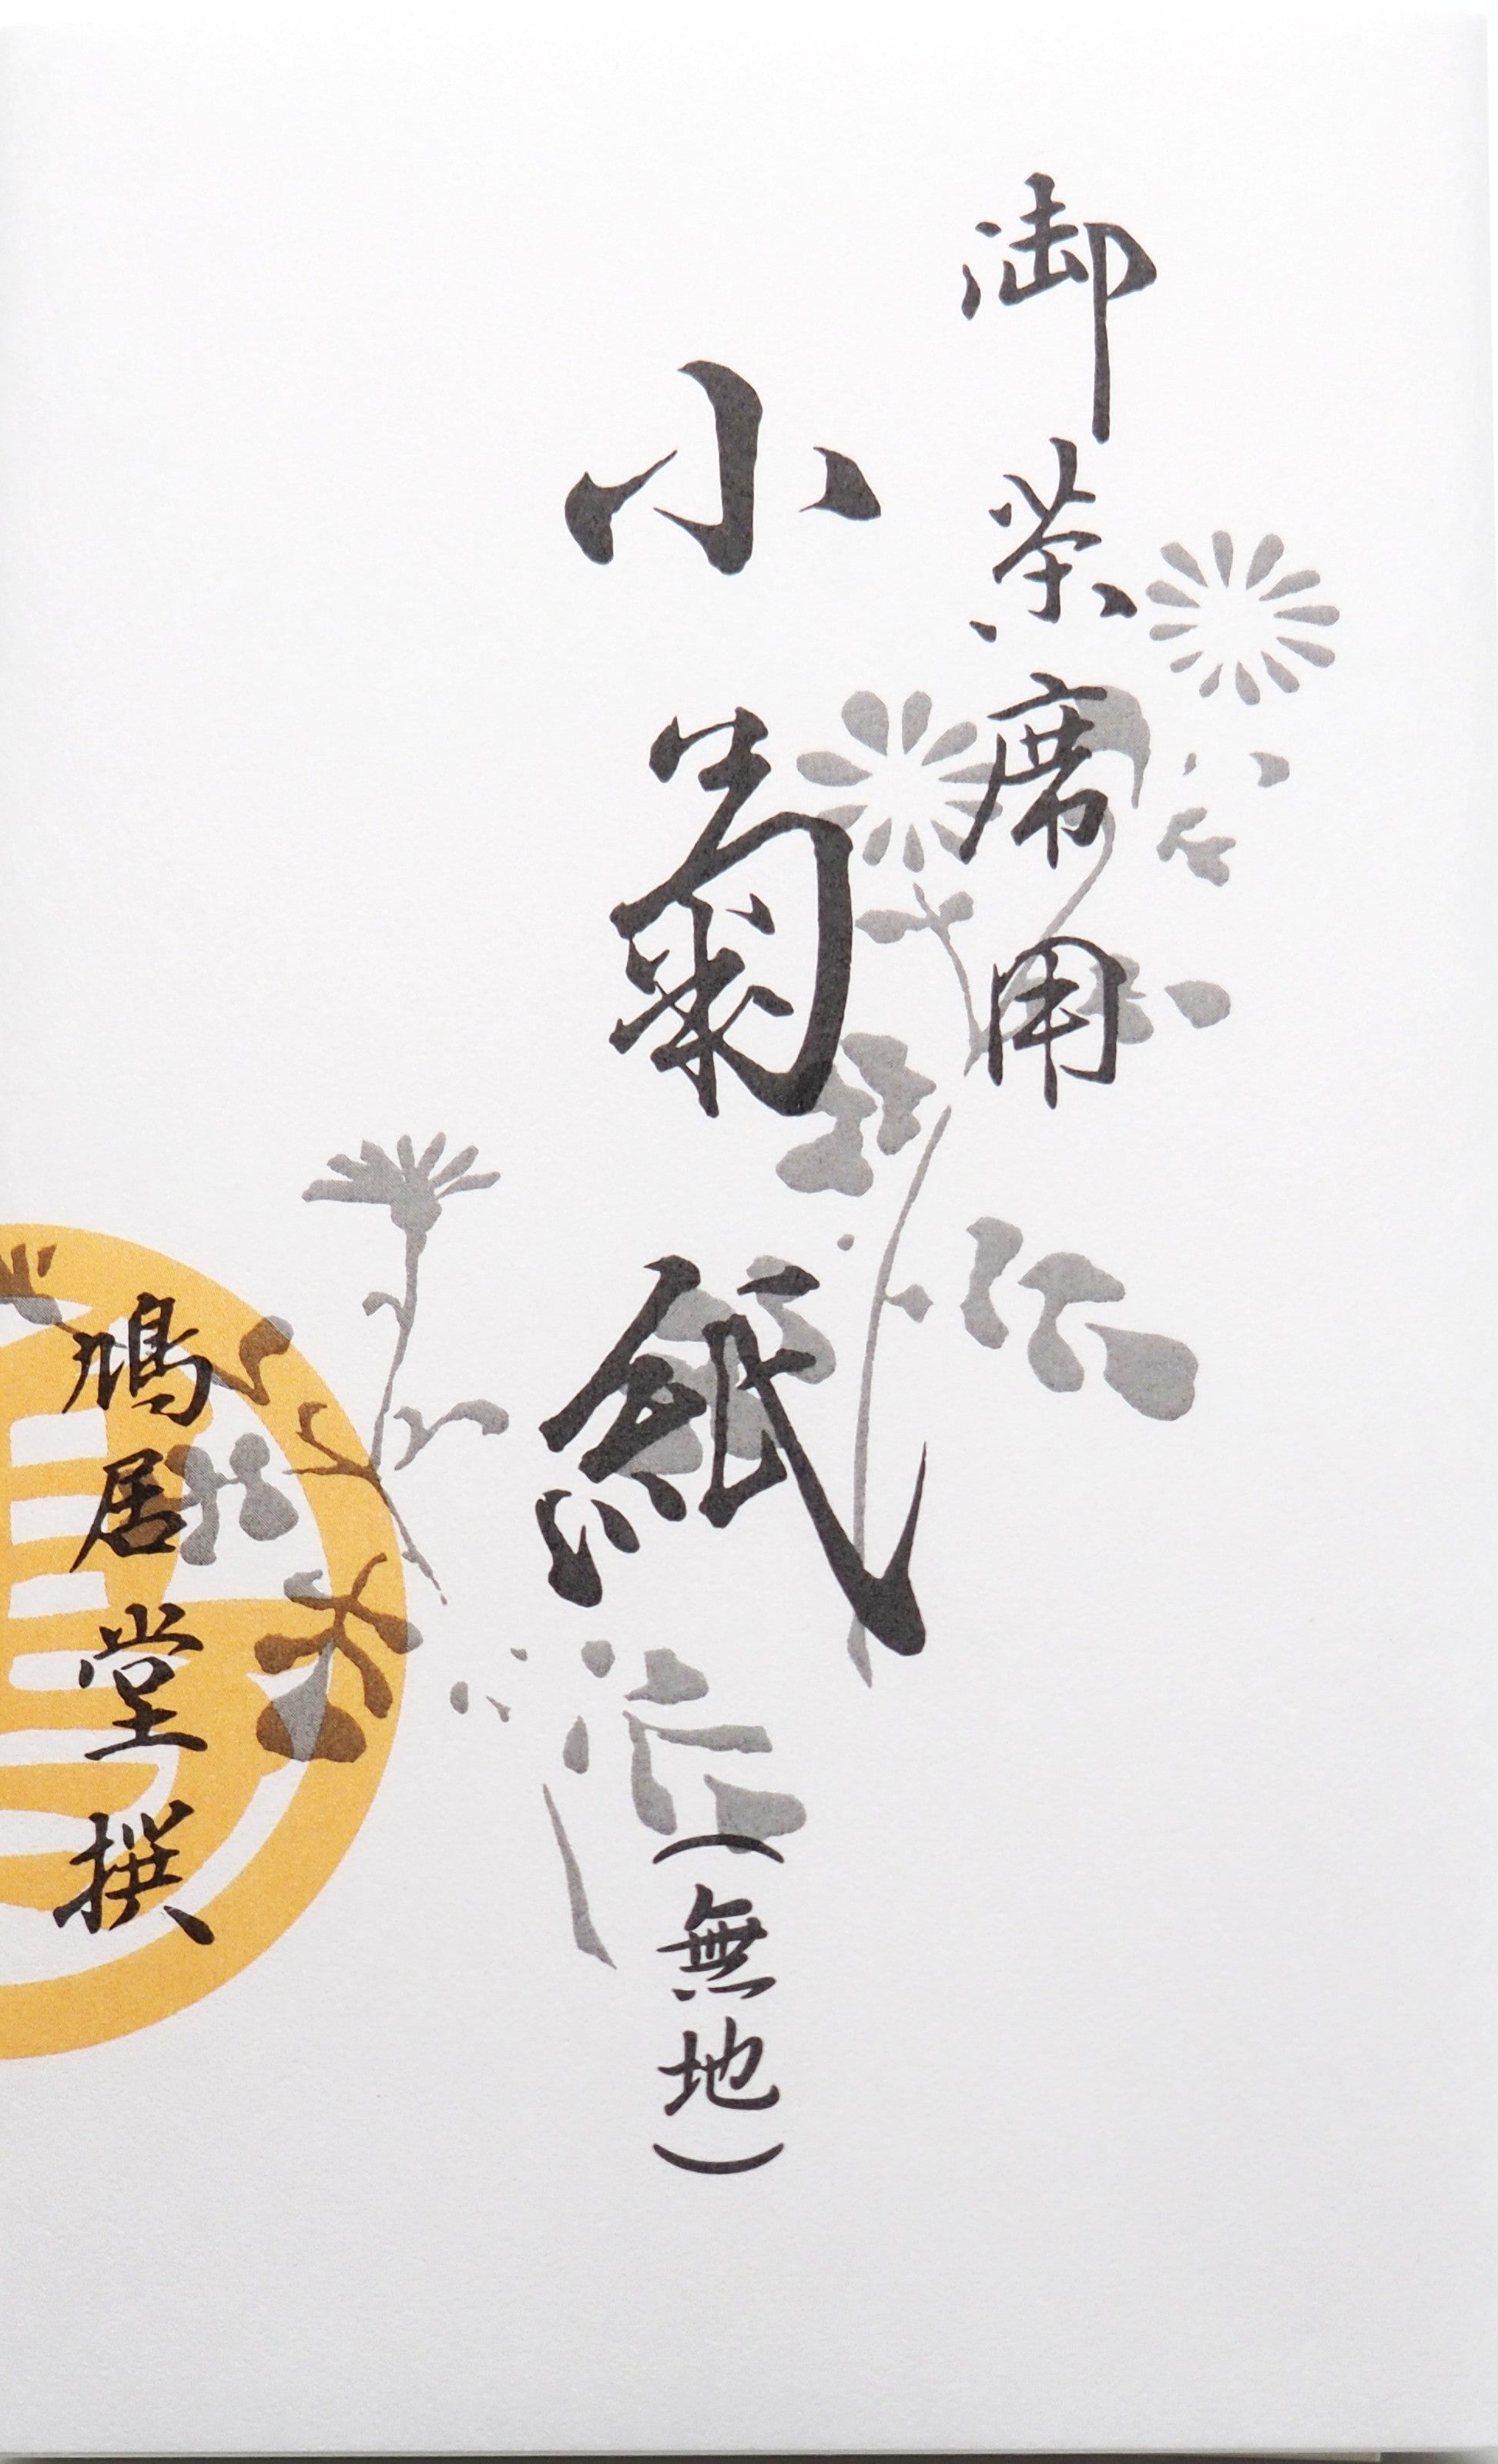 御茶席用
小菊紙（無地）
鳩居堂撰